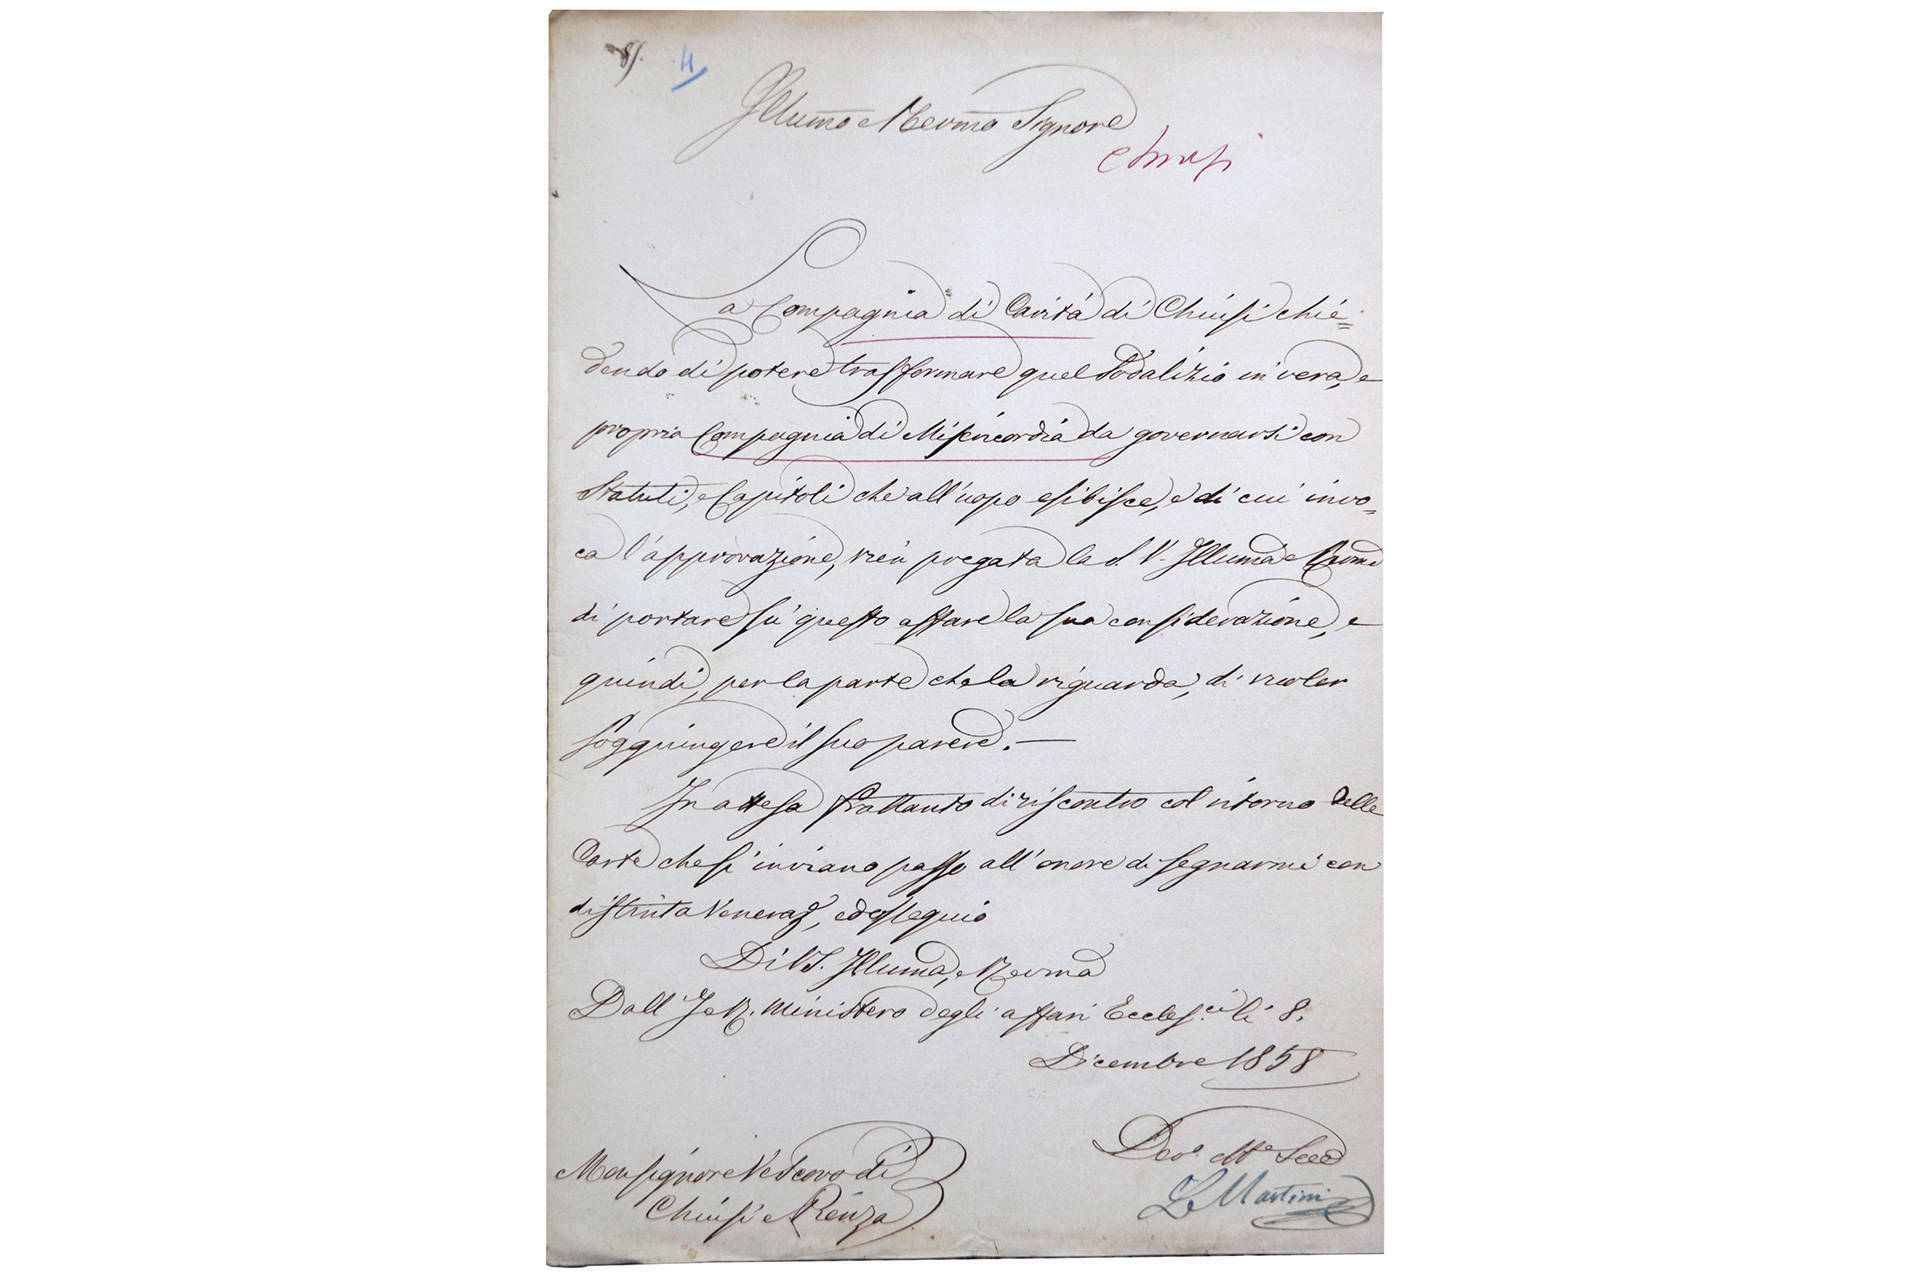 81. 4
Illumo e Revmo Signore
Chiusi
La Compagnia di Carità di Chiusi chie=
dendo di potere trasformare quel Sodalizio in vera, e
propria Compagnia di Misericordia da governarsi con
Statuti, e Capitoli che all'uopo esibisce, e di cui invo=
ca l'approvazione, vien pregata la S. V. Illuma e Revma
di portare su questo affare la sua considerazione, e
quindi, per la parte che la riguarda, di voler
soggiungere il suo parere. —
In attesa frattanto di riscontro col ritorno delle
Carte che si inviano passo all'onore di segnarmi con
distinta Veneraz, ed ossequio
Di V. S. Illuma, e Revma
Dall' I. e R. Ministero degli affari Eccles.ci li 8.
Dicembre 1858
Devo. 
Monsignore Vescovo di
Chiusi e Pienza
L Martini